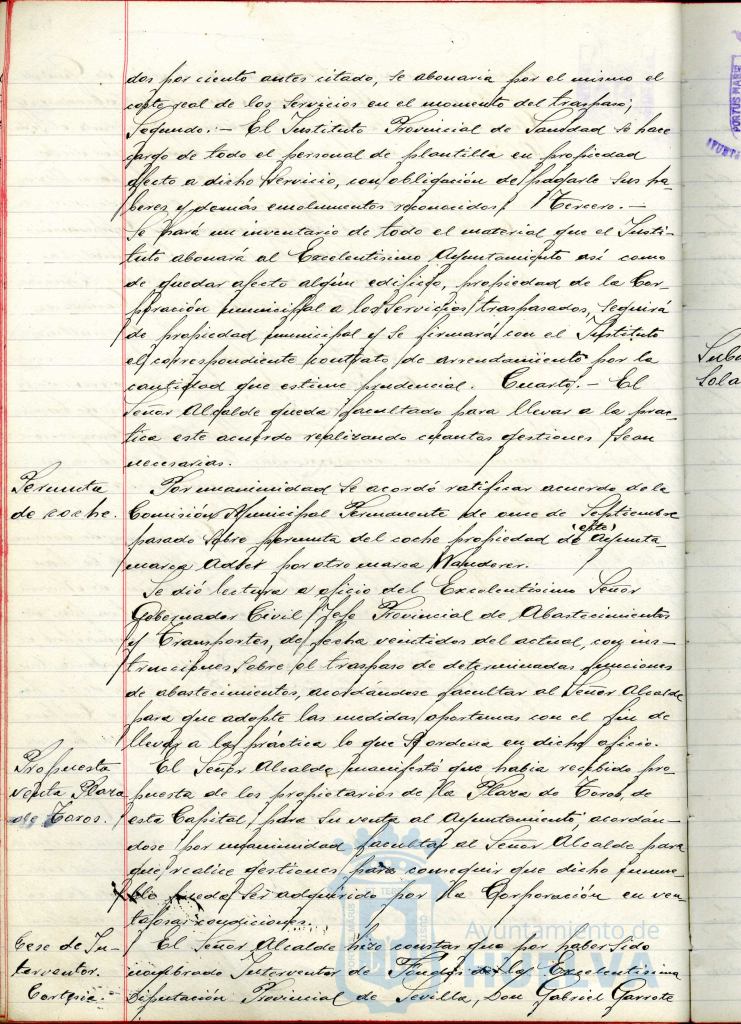 dos por ciento antes citado, se abonaria por el mismo el
coste real de los Servicios en el momento del traspaso;
Segundo.- El Instituto Provincial de Sanidad se hace
cargo de todo el personal de plantilla en propiedad
afecto a dicho Servicio, con obligación de pagarle sus ha-
beres y demás emolumentos reconocidos; Tercero.-
Se hará un inventario de todo el material que el Insti-
tuto abonará al Excelentisimo Ayuntamiento así como
de quedar afecto algún edificio, propiedad de la Cor-
poración municipal a los Servicios traspasados, seguirá
de propiedad municipal y se firmará con el Instituto
el correspondiente contrato de arrendamiento por la
cantidad que estime prudencial. Cuarto.- El
Señor Alcalde queda facultado para llevar a la prac-
tica este acuerdo realizando cuantas gestiones sean
necesarias.
Permuta
de coche.
Por unanimidad se acordó ratificar acuerdo de la
Comisión Municipal Permanente de once de Septiembre
pasado sobre permuta del coche propiedad de (este) Ayunta-
marca por otro marca Wanderer.
Se dió lectura a oficio del Excelentísimo Señor
Gobernador Civil Jefe Provincial de Abastecimientos
y Transportes, de fecha veintidos del actual, con ins-
trucciones sobre el traspaso de determinadas funciones
de abastecimientos, acordándose facultar al Señor Alcalde
para que adopte las medidas oportunas con el fin de
llevar a la práctica lo que se ordena en dicho oficio.
Propuesta
venta Plaza
de Toros.
El Señor Alcalde manifestó que habia recibido pro-
puesta de los propietarios de la Plaza de Toros, de
esta Capital, para su venta al Ayuntamiento acordán-
dose por unanimidad facultar al Señor Alcalde para
que realice gestiones para conseguir que dicho inmue-
ble pueda ser adquirido por la Corporación en ven-
tajosas condiciones.
Cese de In-
terventor.
Cortesia.
El Señor Alcalde hizo constar que por haber sido
nombrado Interventor de Fondos de la Excelentisima
Diputación Provincial de Sevilla, Don Gabriel Garrote
Ayuntamiento de
HUELVA
PORTUS MARIS